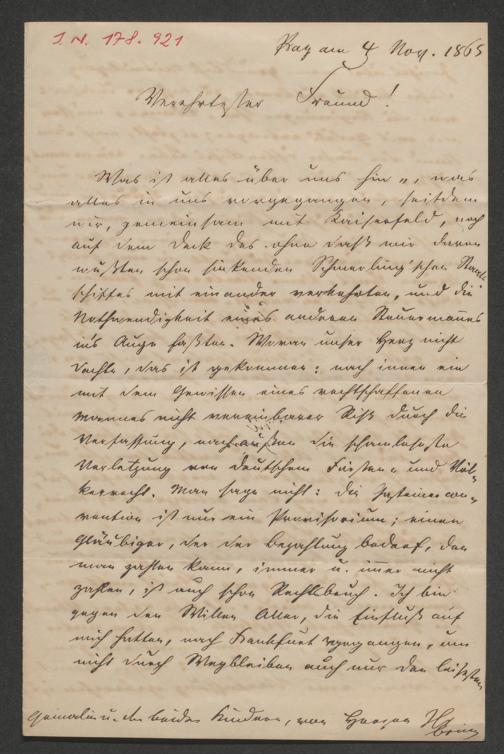 I. N. 178.921
Prag am 4 Nov. 1865
Verehrtester Freund!
Was ist alles über uns hin, was
alles in uns vorgegangen, seitdem
wir, gemeinsam mit Kaiserfeld, noch
auf dem Deck des ohne daß wir davon
wußten schon sinkenden Schmerling'schen Staats-
schiffes mit einander verkehrten, und die
Nothwendigkeit eines anderen Steuermannes
in's Auge faßten. Woran unser Herz nicht
dachte, das ist gekommen: nach innen ein
mit dem Gewissen eines rechtschaffenen
Mannes nicht vereinbarer Riß durch die
Verfassung, nach außen die schamloseste
Verletzung von deutschem Fürsten- und Völ-
kerrecht. Man sage nicht: die Gasteiner Con-
vention ist nur ein Provisorium; einen
Gläubiger, der der Bezahlung bedarf, den
man zahlen kann, immer u. immer nicht
zahlen, ist auch schon Rechtsbruch. Ich bin
gegen den Willen Aller, die Einfluß auf
mich hatten, nach Frankfurt gegangen, um
nicht durch Wegbleiben auch nur den leisesten
Gemalin u. die beiden Kindern, von Herzen